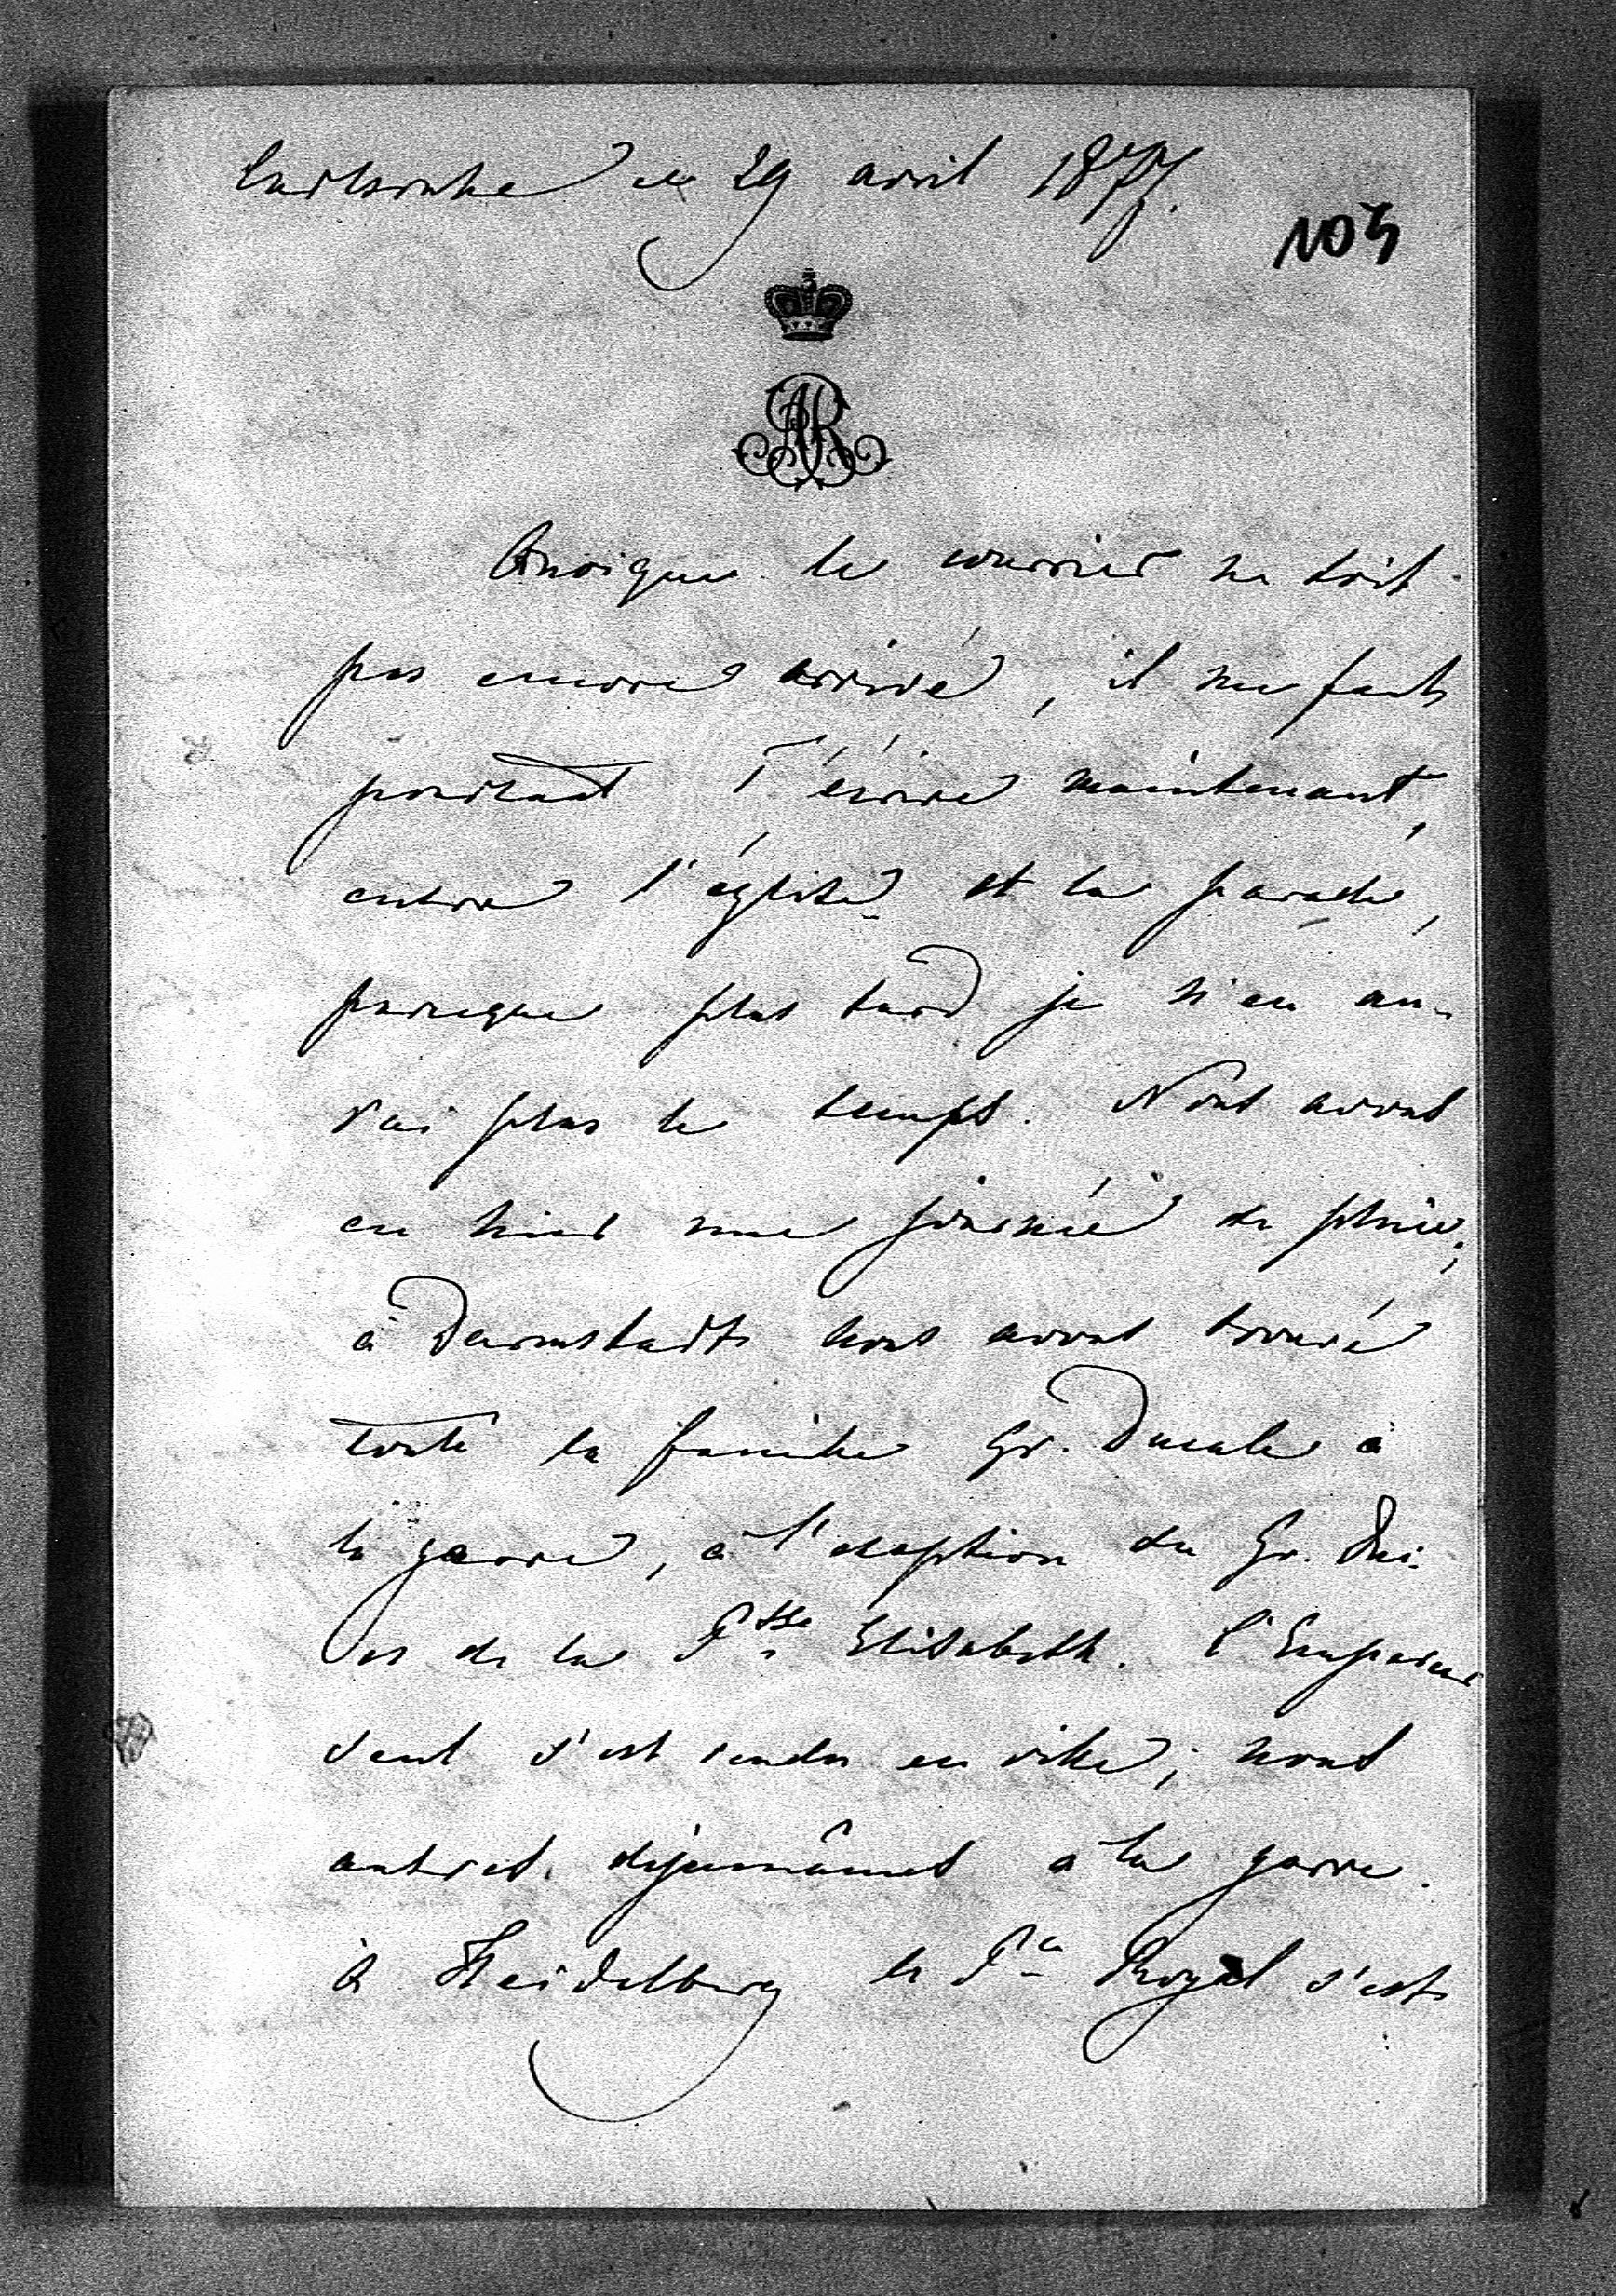 Carlsruhe ce 29 avril 1877.
103
AR
Quoique le courrier ne soit
pas encore arrivé, il me faut
pourtant T'écrire maintenant,
entre l'église et la parade,
parceque plus tard je n'en au-
rai plus le temps. Nous avons
eu hier une journée de pluie;
à Darmstadt nous avons trouvé
toute la famille Gr. Ducale à
la garre, à l'exeption du Gr. Duc
et de la Psse Elisabeth. L'Empereur
seul s'est rendu en ville; nous
autres déjeunâmes à la garre.
à Heidelberg le Pce Royal s'est